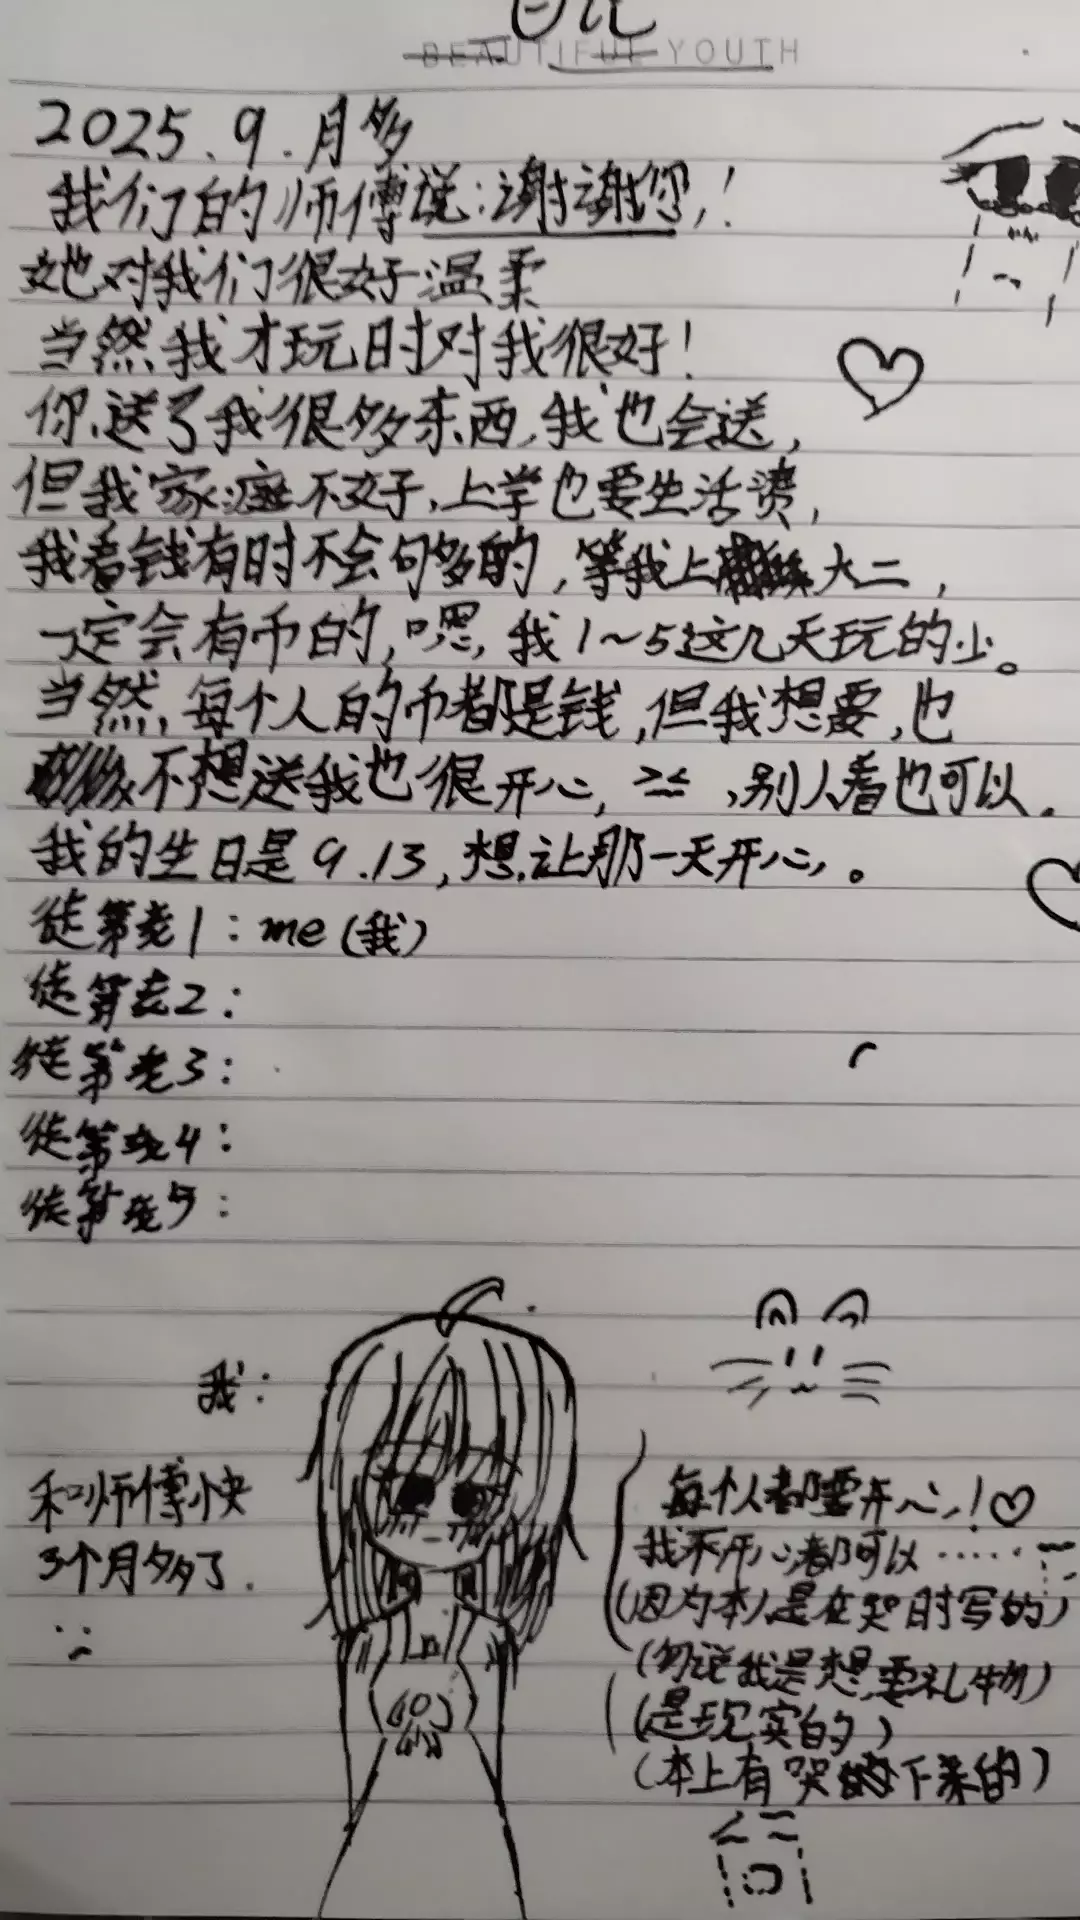 日记
BEAUTIFUL YOUTH
2025.9.月多
我们的师傅说:谢谢您,!
她对我们很好温柔
当然,我才玩时对我很好!
你,送了我很多东西,我也会送,
但我家庭不好,上学也要生活费,
我看钱有时不会句多的,等我上大二,
一定会有币的,嗯,我1~5这几天玩的少。
当然,每个人的币都是钱,但我想要,也
不想送我也很开心,><,别人看也可以.
我的生日是9.13,想让那一天开心。
徒第老1:me(我)
徒第老2:
徒第老3:
徒第老4:
徒第老5:
我:
和师傅快
3个月多了.
每个人都要开心!♡
我不开心都可以……
(因为本人是在哭时写的)
(勿说我是想要礼物)
(是现实的)
(本上有哭下来的)